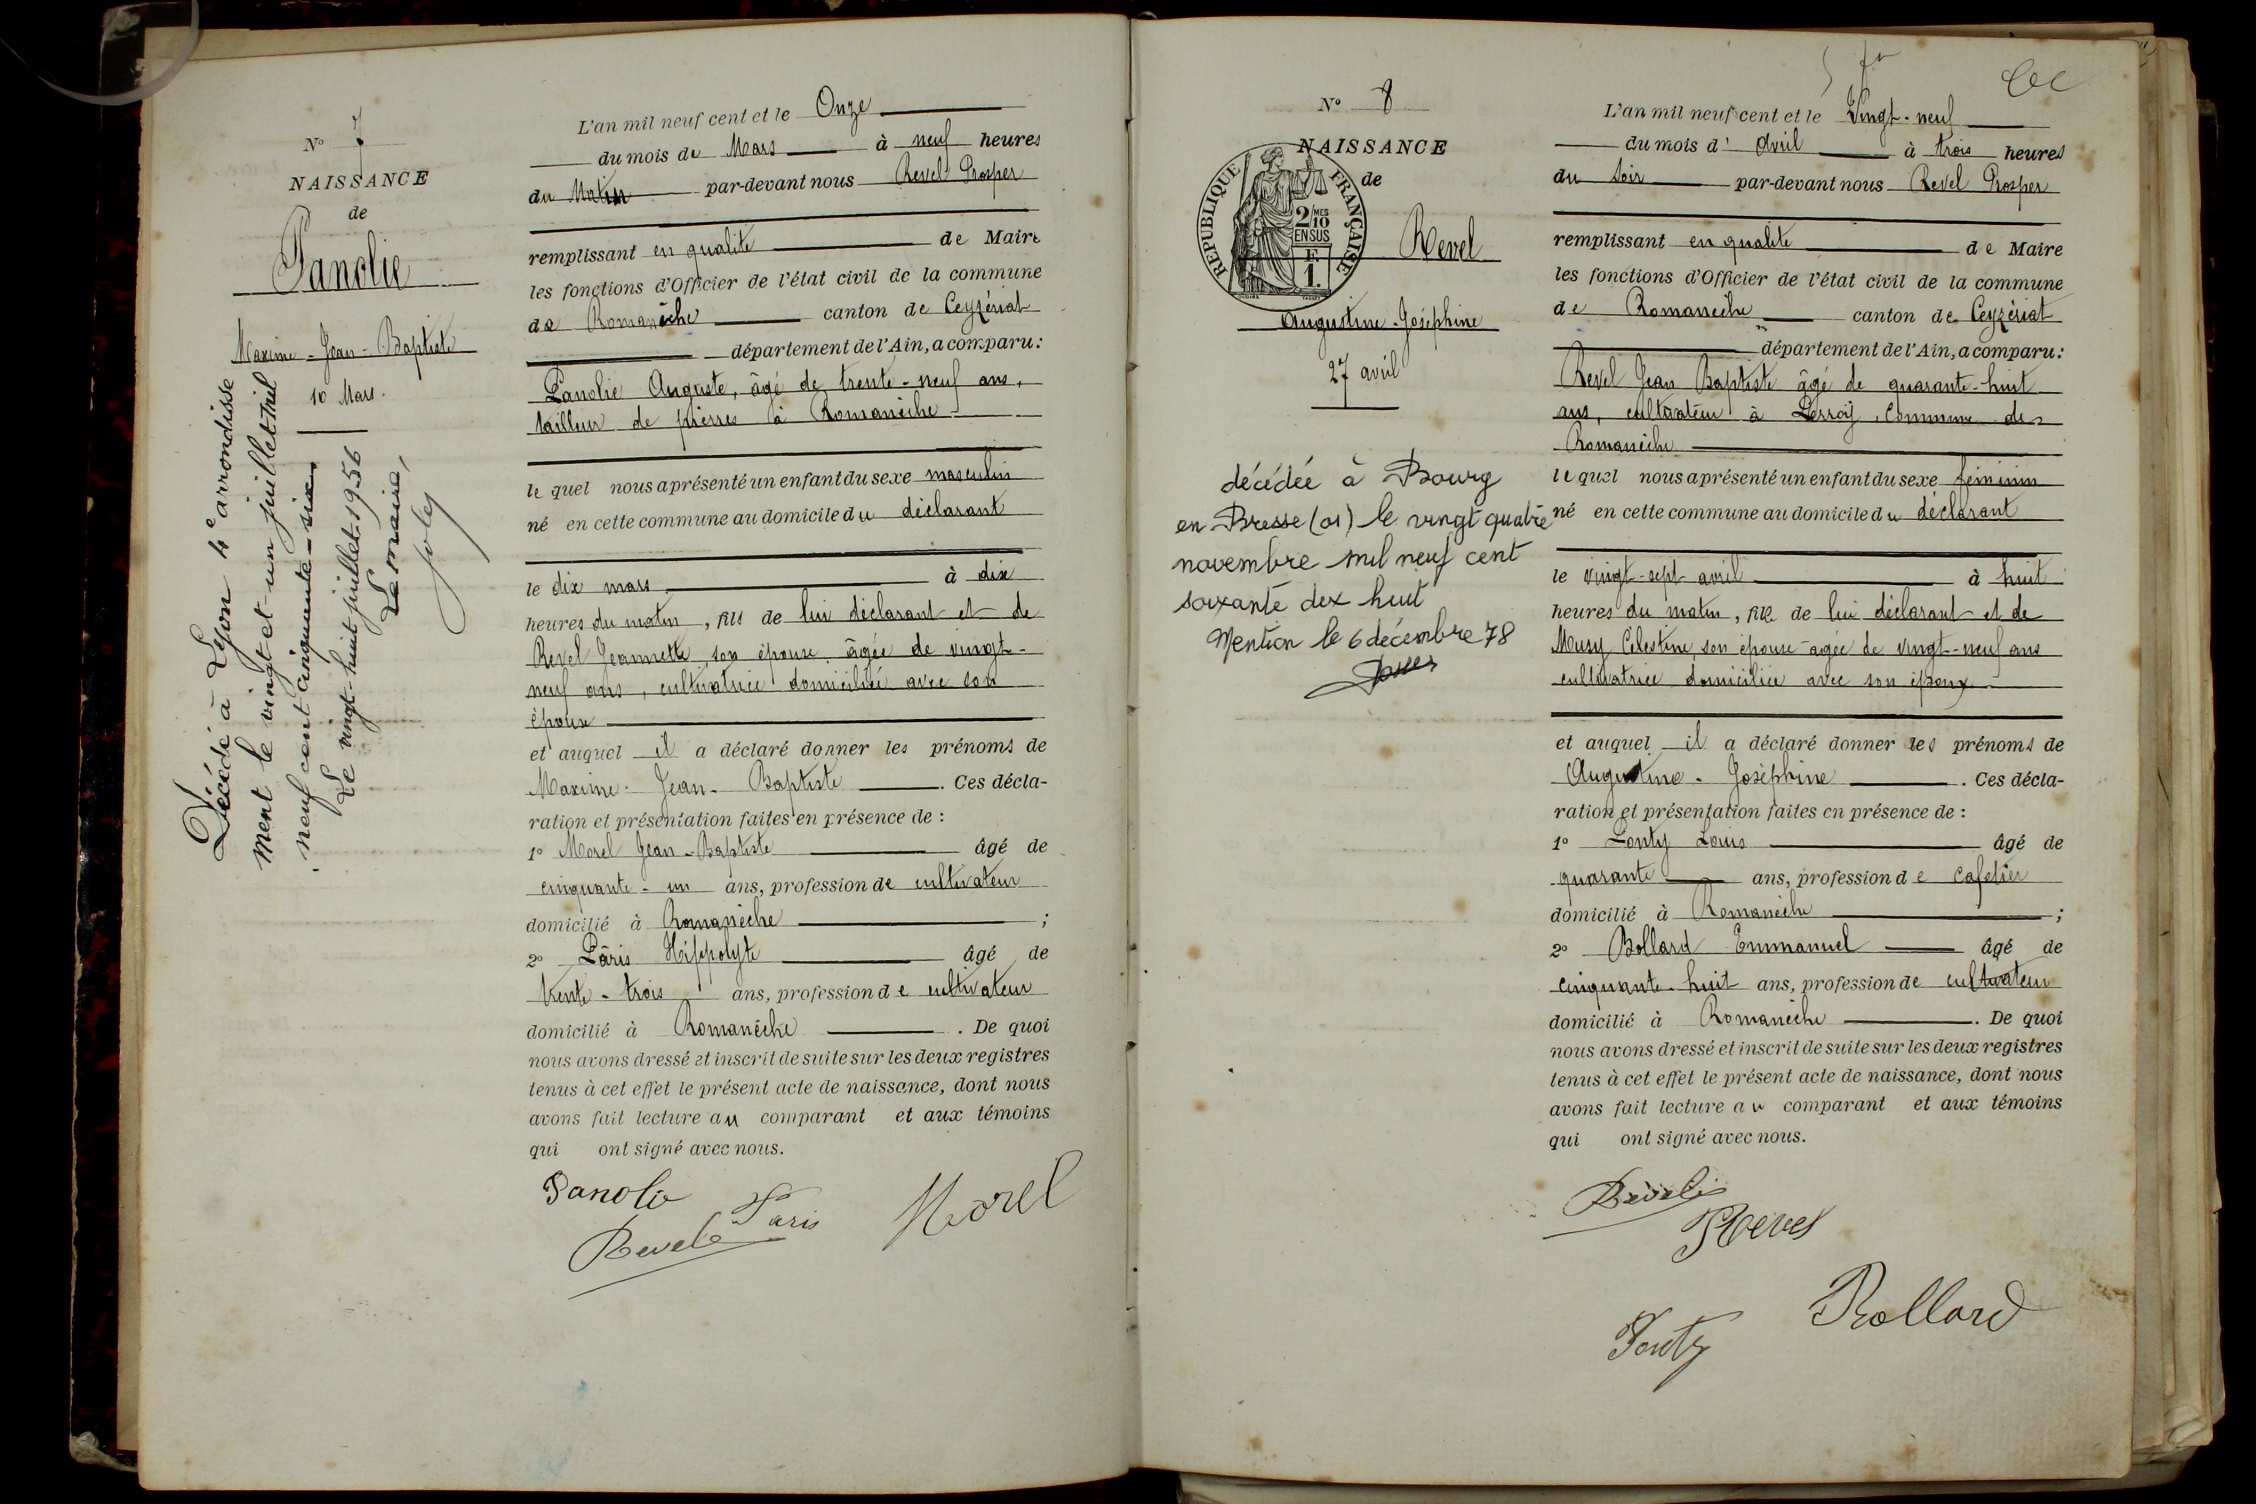 N° 7
NAISSANCE
de
Panolie
Maxime - Jean - Baptiste
10 Mars.
Décédé à Lyon 4e arrondisse
ment le vingt et un juillet mil
neuf cent cinquante-six
Le vingt-huit juillet 1956
Le maire,
Joly
L'an mil neuf cent et le Onze
du mois de Mars à neuf heures
du Matin par-devant nous Revel Prosper
remplissant en qualité de Maire
les fonctions d'Officier de l'état civil de la commune
de Romanèche canton de Ceyzériat
département de l'Ain, a comparu:
Panolie Auguste, âgé de trente-neuf ans,
tailleur de pierres à Romanèche
le quel nous a présenté un enfant du sexe masculin
né en cette commune au domicile du déclarant
le dix mars à dix
heures du matin, fils de lui déclarant et de
Revel Jeannette son épouse âgée de vingt-
neuf ans, cultivatrice domiciliée avec son
époux
et auquel il a déclaré donner les prénoms de
Maxime - Jean - Baptiste. Ces décla-
ration et présentation faites en présence de :
1° Morel Jean-Baptiste âgé de
cinquante-un ans, profession de cultivateur
domicilié à Romanèche ;
2° Pâris Hippolyte âgé de
trente-trois ans, profession de cultivateur
domicilié à Romanèche. De quoi
nous avons dressé et inscrit de suite sur les deux registres
tenus à cet effet le présent acte de naissance, dont nous
avons fait lecture au comparant et aux témoins
qui ont signé avec nous.
Panolie
Paris
Morel
Revel
N° 8
NAISSANCE
de
RÉPUBLIQUE FRANÇAISE
2/10 MES
EN SUS
F.
1.
Revel
Augustine-Joséphine
27 avril
décédée à Bourg
en Bresse (01) le vingt quatre
novembre mil neuf cent
soixante dix huit
Mention le 6 décembre 78
L'an mil neuf cent et le Vingt-neuf
du mois d'Avril à trois heures
du Soir par-devant nous Revel Prosper
remplissant en qualité de Maire
les fonctions d'Officier de l'état civil de la commune
de Romanèche canton de Ceyzériat
département de l'Ain, a comparu:
Revel Jean Baptiste âgé de quarante-huit
ans, cultivateur à commune de
Romanèche
le quel nous a présenté un enfant du sexe féminin
né en cette commune au domicile du déclarant
le vingt-sept avril à huit
heures du matin, fille de lui déclarant et de
Musy Célestine, son épouse âgée de vingt-neuf ans
cultivatrice domiciliée avec son époux
et auquel il a déclaré donner les prénoms de
Augustine - Joséphine. Ces décla-
ration et présentation faites en présence de :
1° Ponty Louis âgé de
quarante ans, profession de Cafetier
domicilié à Romanèche ;
2° Bollard Emmanuel âgé de
cinquante-huit ans, profession de cultivateur
domicilié à Romanèche. De quoi
nous avons dressé et inscrit de suite sur les deux registres
tenus à cet effet le présent acte de naissance, dont nous
avons fait lecture au comparant et aux témoins
qui ont signé avec nous.
Revel
Revel
Bollard
Ponty